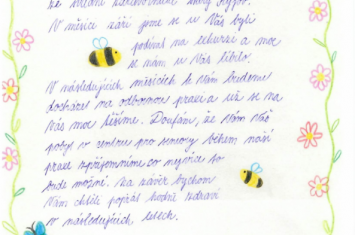 ze střední zdravotnické školy
V měsíci září jsme se u Vás byli
podívat na exkurzi a moc
se nám u Vás líbilo.
V následujících měsících k Vám budeme
docházet na odbornou praxi a už se na
Vás moc těšíme. Doufám, že Vám Váš
pobyt v centru pro seniory během naší
praxe zpříjemníme co nejvíce to
bude možné. Na závěr bychom
Vám chtěli popřát hodně zdraví
v následujících letech.